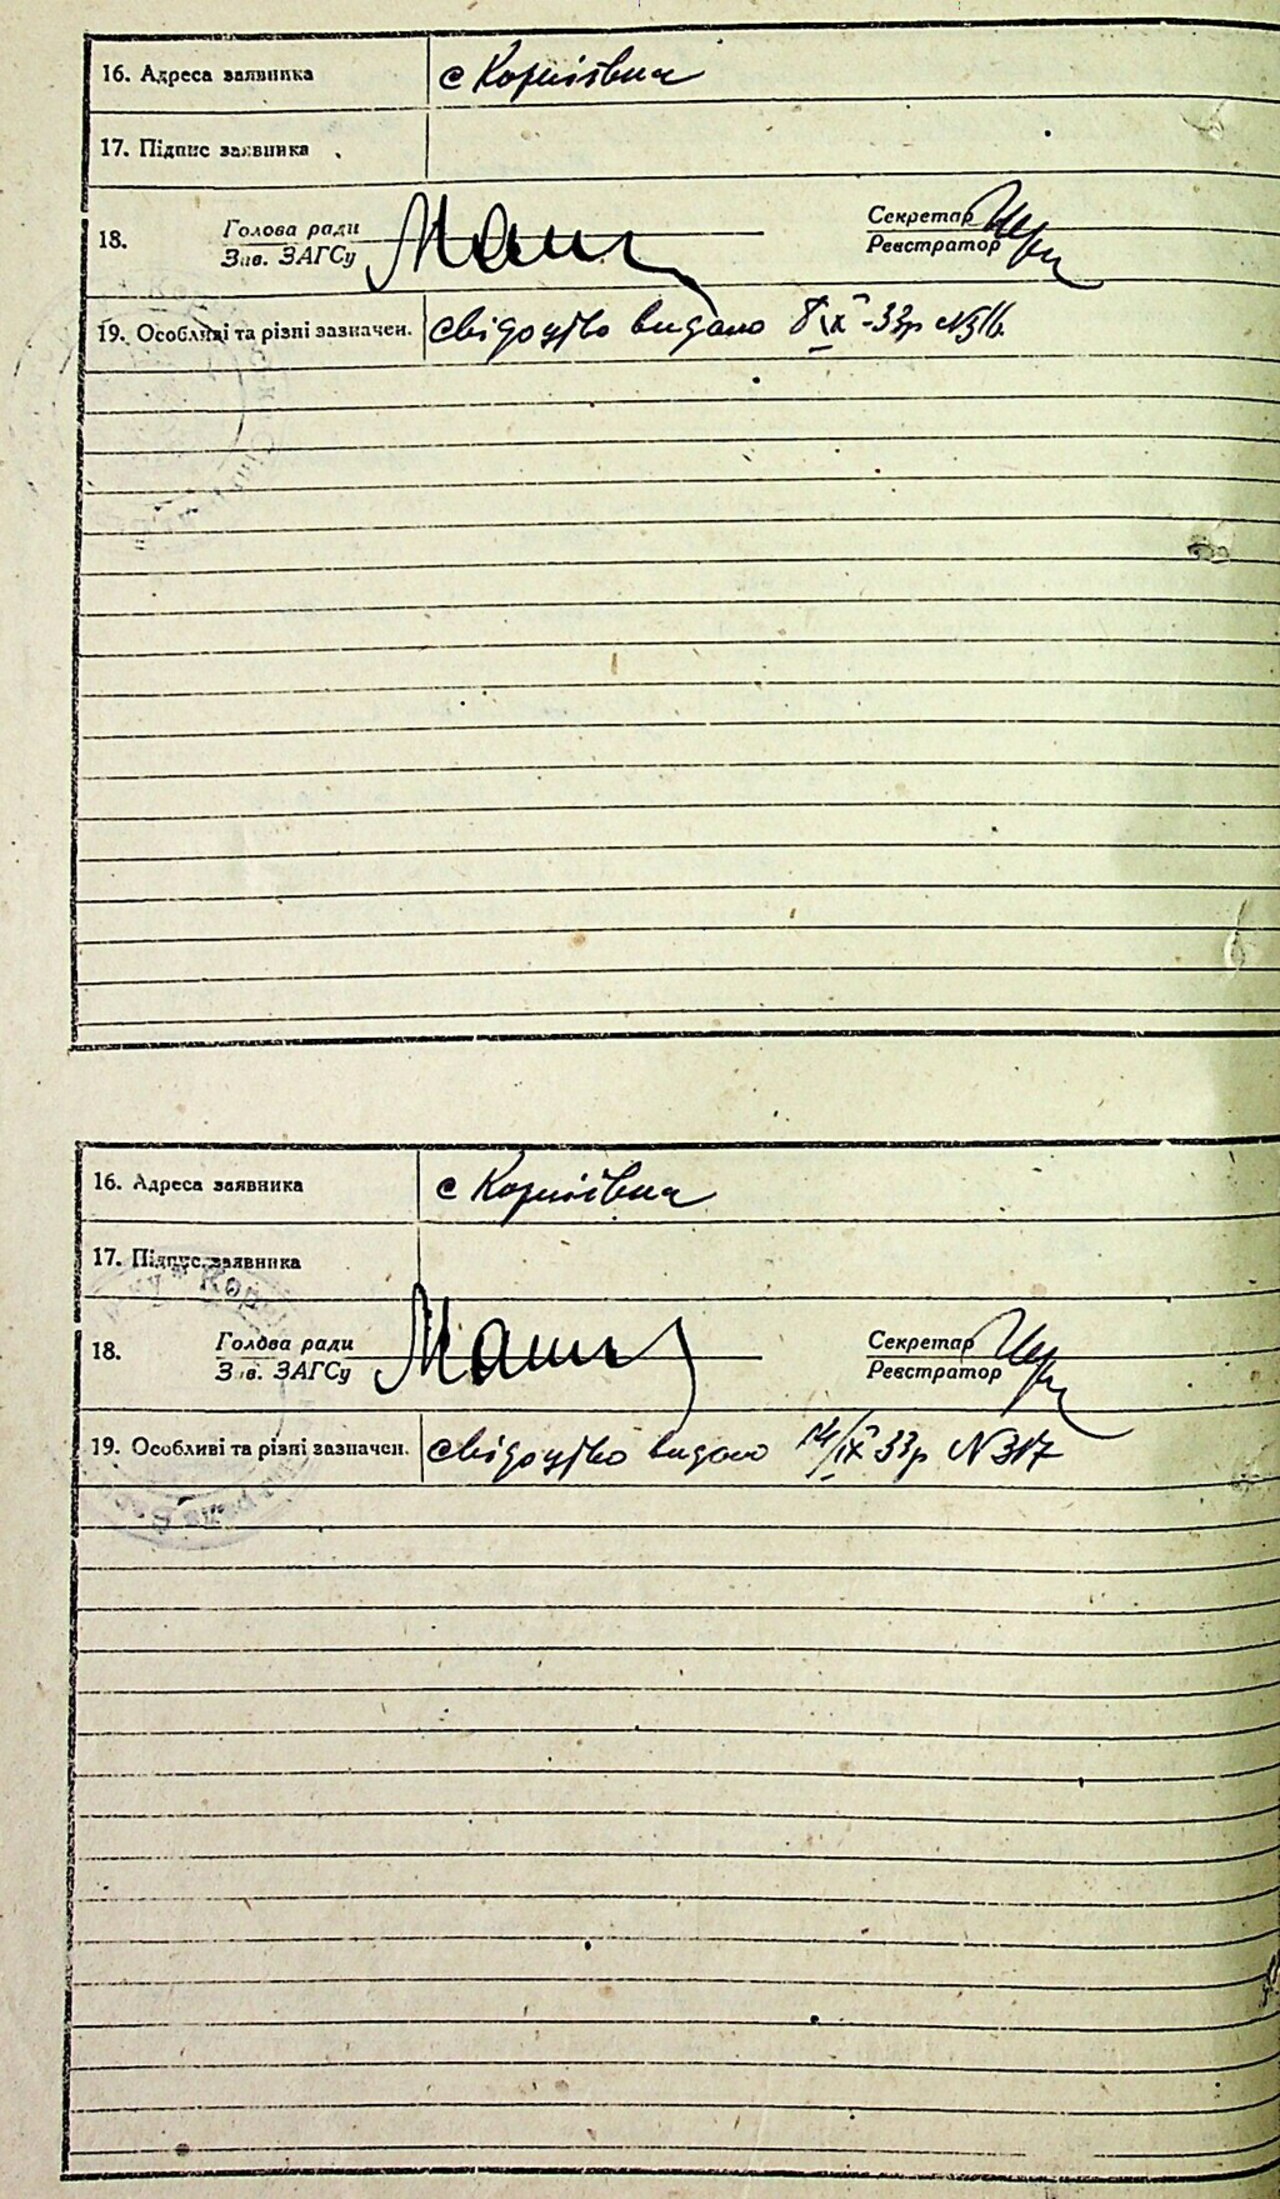 16. Адреса заявника с Корніївка
17. Підпис заявника
18. Голова ради Секретар
Зав. ЗАГСу Реєстратор
19. Особливі та різні зазначен. свідоцтво видано 8/ІХ-33р №316
16. Адреса заявника с Корніївка
17. Підпис заявника
18. Голова ради Секретар
Зав. ЗАГСу Реєстратор
19. Особливі та різні зазначен. свідоцтво видано 14/ІХ 33р №317